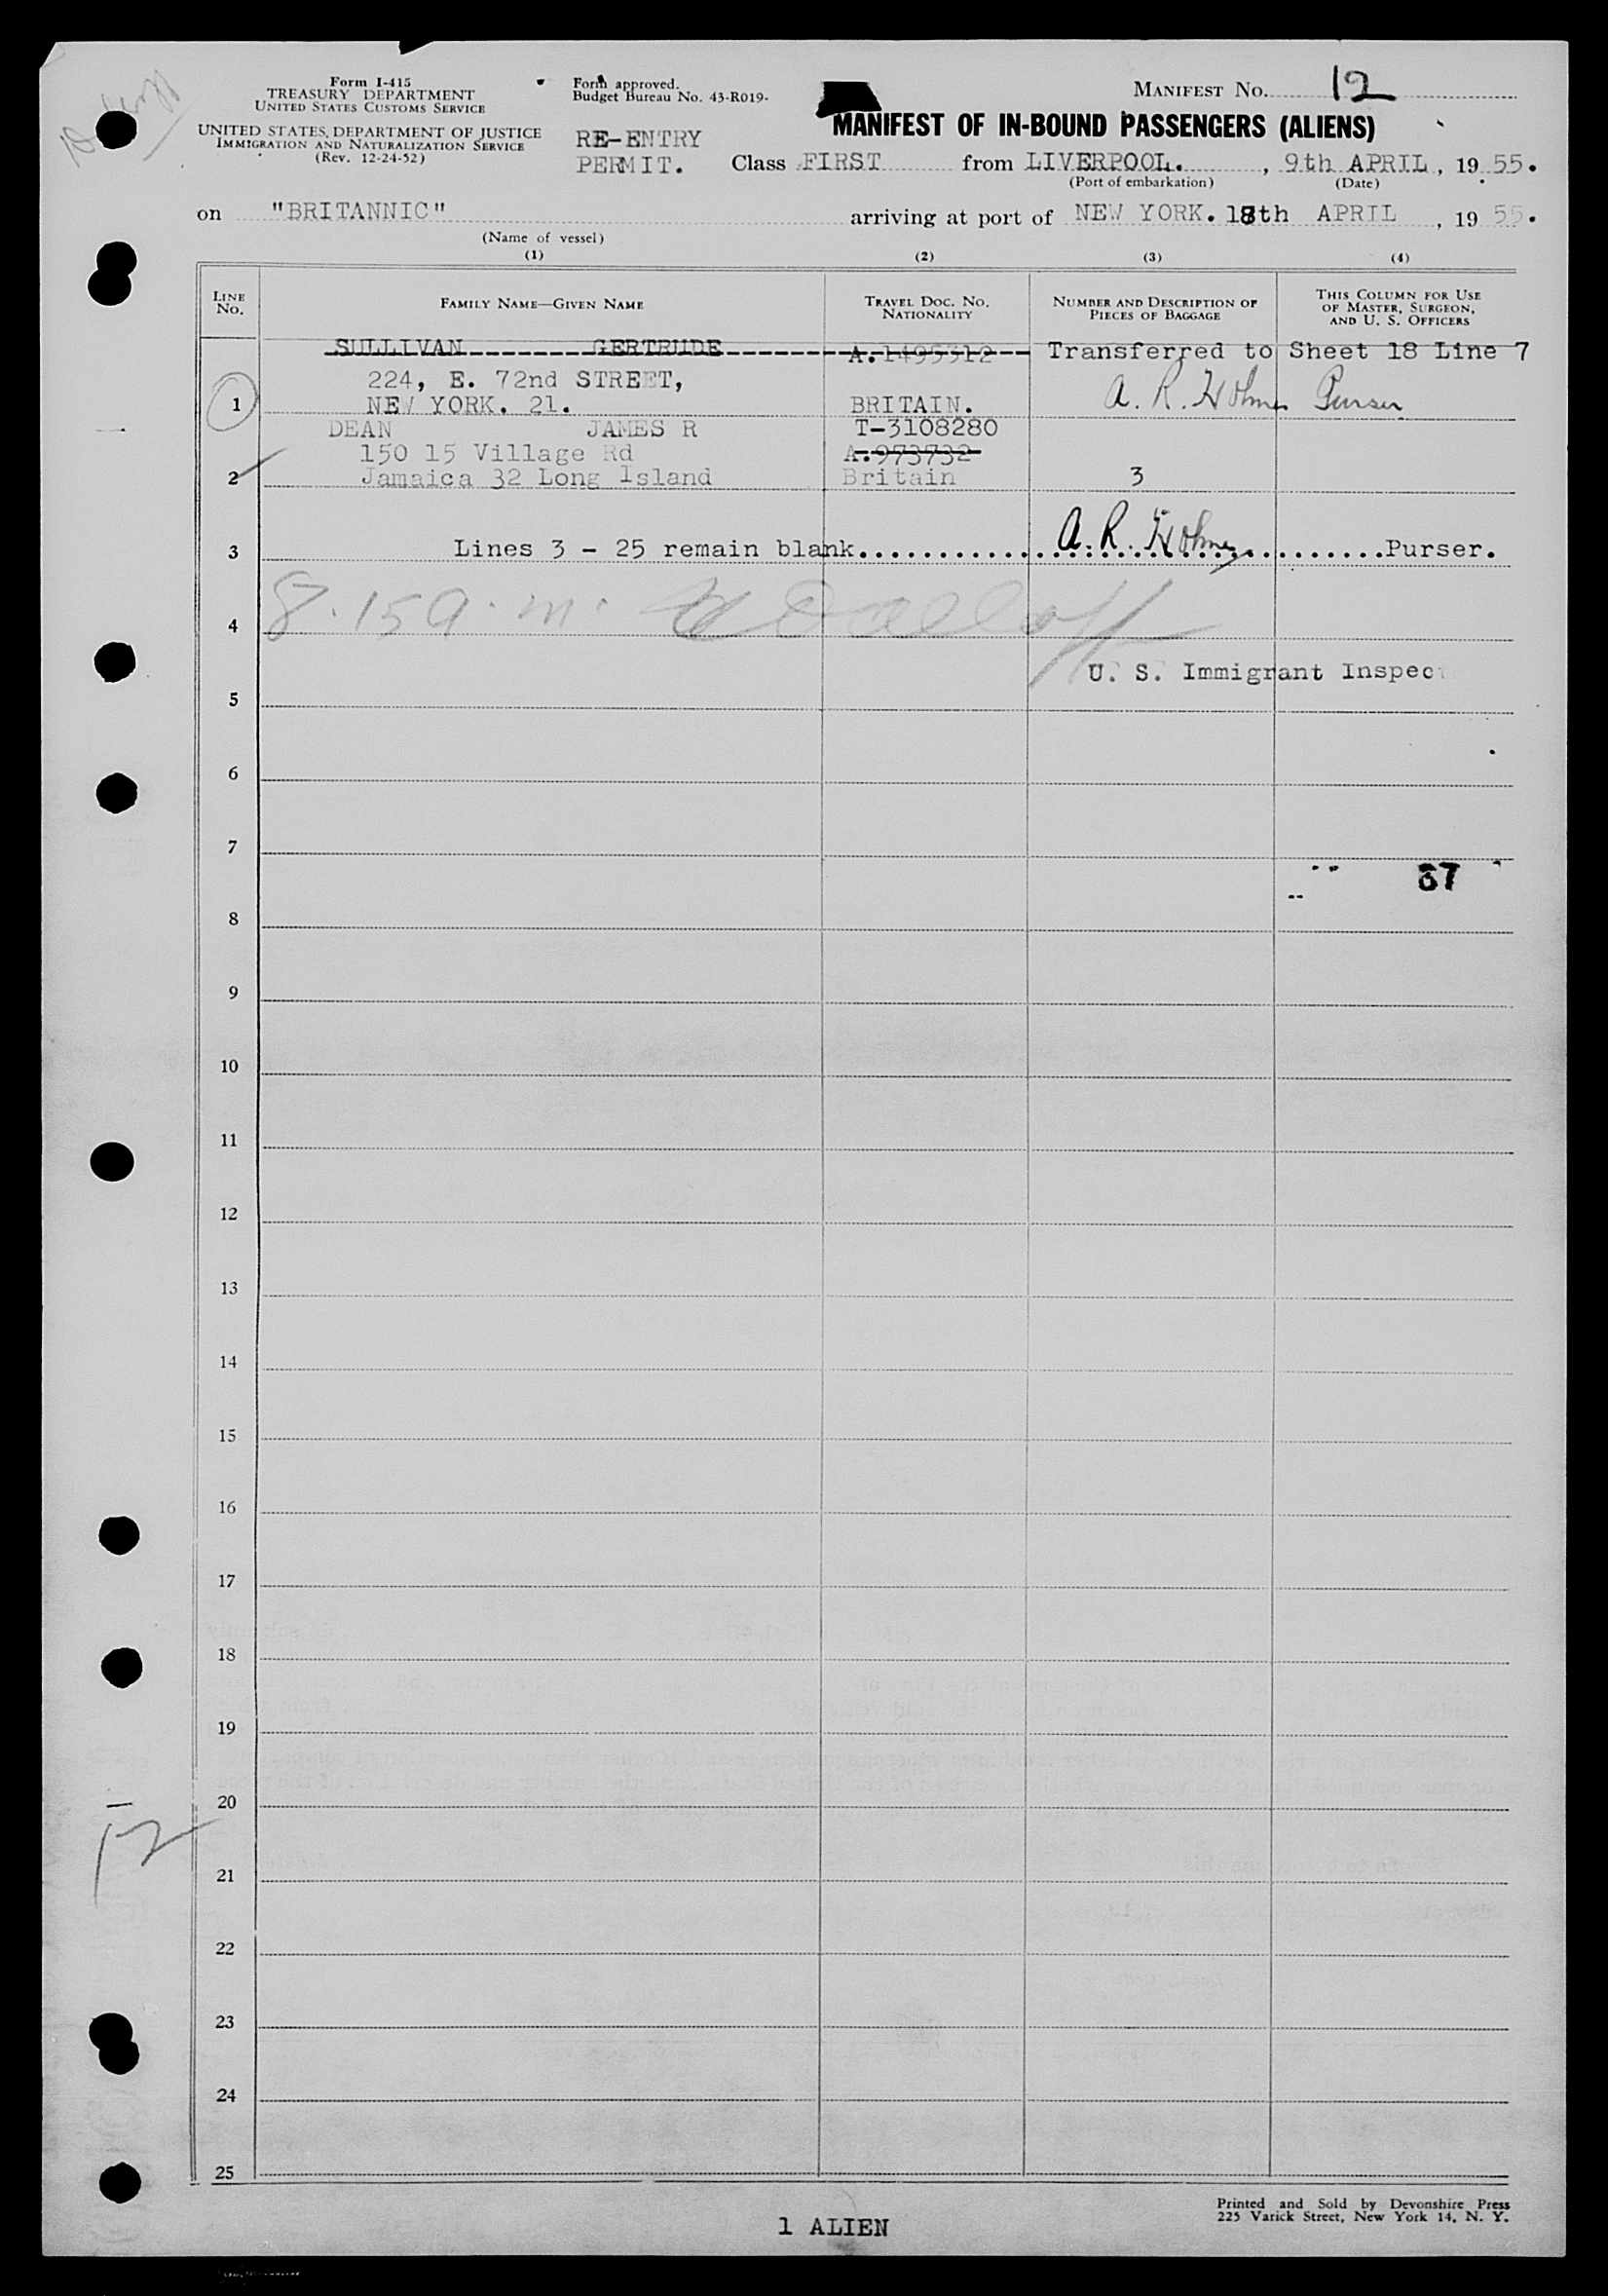 Form I-415
TREASURY DEPARTMENT
UNITED STATES CUSTOMS SERVICE
UNITED STATES DEPARTMENT OF JUSTICE
IMMIGRATION AND NATURALIZATION SERVICE
(Rev. 12-24-52)
Form approved.
Budget Bureau No. 43-R019-
RE-ENTRY
PERMIT.
MANIFEST NO. 12
MANIFEST OF IN-BOUND PASSENGERS (ALIENS)
Class FIRST from LIVERPOOL. , 9th APRIL , 19 55.
(Port of embarkation) (Date)
on "BRITANNIC" arriving at port of NEW YORK. 18th APRIL , 19 55.
(Name of vessel)
(1) (2) (3) (4)
LINE NO. FAMILY NAME—GIVEN NAME TRAVEL DOC. NO. NATIONALITY NUMBER AND DESCRIPTION OF PIECES OF BAGGAGE THIS COLUMN FOR USE OF MASTER, SURGEON, AND U. S. OFFICERS
SULLIVAN GERTRUDE A.1495312 Transferred to Sheet 18 Line 7
224, E. 72nd STREET, A. R. Holmes Purser
1 NEW YORK. 21. BRITAIN.
DEAN JAMES R T-3108280
150 15 Village Rd A.973732
2 Jamaica 32 Long Island Britain 3
3 Lines 3 - 25 remain blank A. R. Holmes Purser.
8.15 a.m.
4
U. S. Immigrant Inspec
5
6
7
67
8
9
10
11
12
13
14
15
16
17
18
19
20
12
21
22
23
24
25
1 ALIEN
Printed and Sold by Devonshire Press
225 Varick Street, New York 14, N. Y.